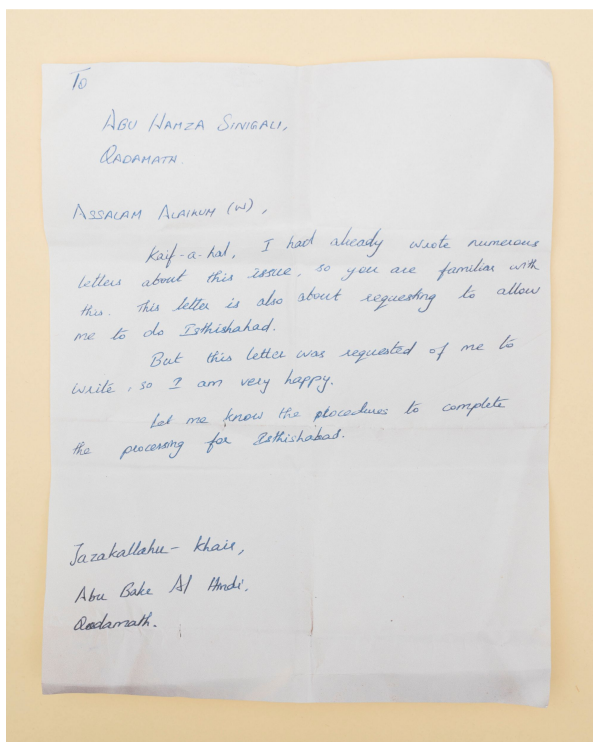 To
ABU HAMZA SINIGALI,
QADAMATH.
ASSALAM ALAIKUM (W),
Kaif-a-hal, I had already wrote numerous
letters about this issue, so you are familiar with
this. This letter is also about requesting to allow
me to do Isthishahad.
But this letter was requested of me to
write, so I am very happy.
Let me know the procedures to complete
the processing for Isthishahad.
Jazakallahu-Khair,
Abu Bakr Al Hindi.
Qadamath.